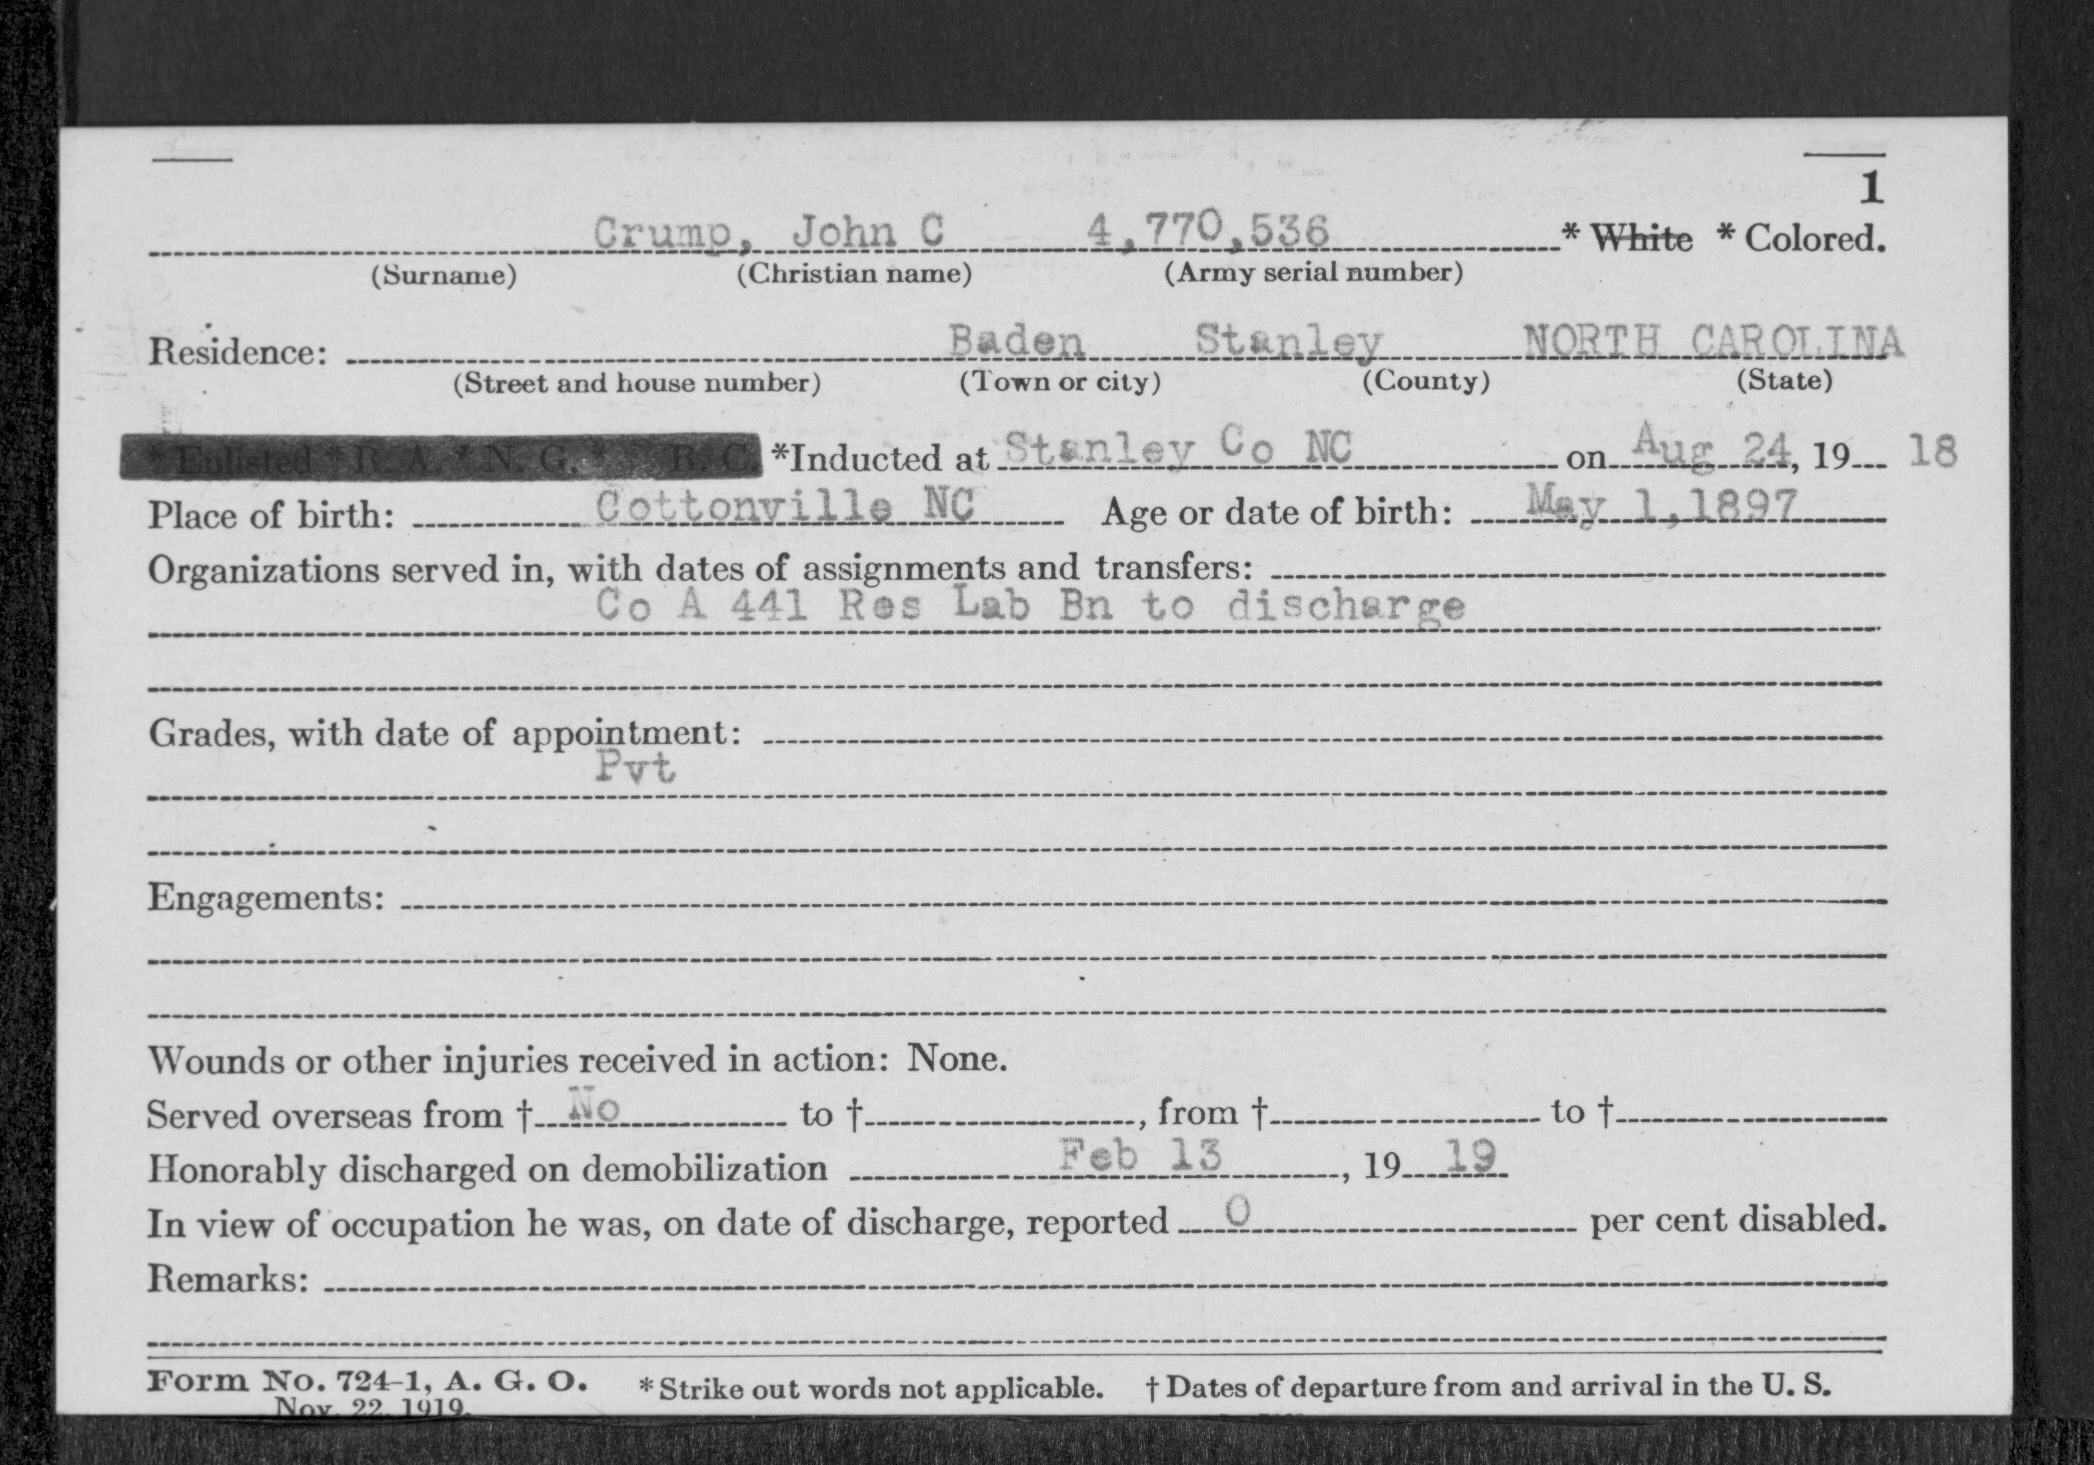 1
Crump, John C 4,770,536 * White * Colored.
(Surname) (Christian name) (Army serial number)
Residence: Baden Stanley NORTH CAROLINA
(Street and house number) (Town or city) (County) (State)
* Enlisted * R. A. * N. G. * R. C. *Inducted at Stanley Co NC on Aug 24, 19 18
Place of birth: Cottonville NC Age or date of birth: May 1,1897
Organizations served in, with dates of assignments and transfers:
Co A 441 Res Lab Bn to discharge
Grades, with date of appointment:
Pvt
Engagements:
Wounds or other injuries received in action: None.
Served overseas from † No to †, from † to †
Honorably discharged on demobilization Feb 13, 19 19
In view of occupation he was, on date of discharge, reported 0 per cent disabled.
Remarks:
Form No. 724-1, A. G. O. *Strike out words not applicable. † Dates of departure from and arrival in the U. S.
Nov. 22, 1919.